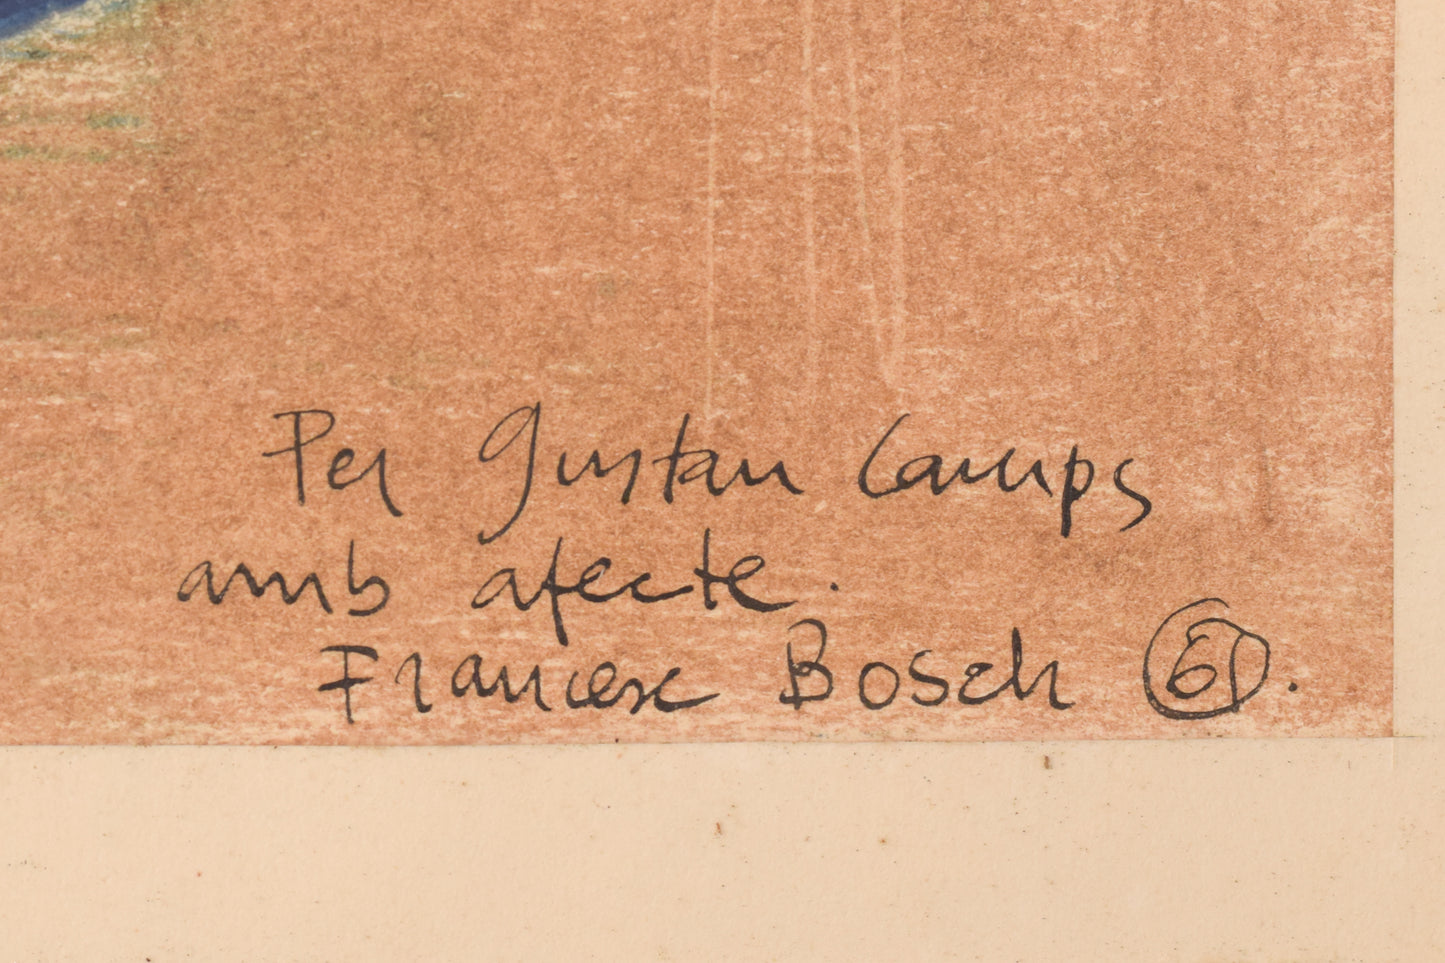 Per Gustau Camps
amb afecte.
Francesc Bosch 61.